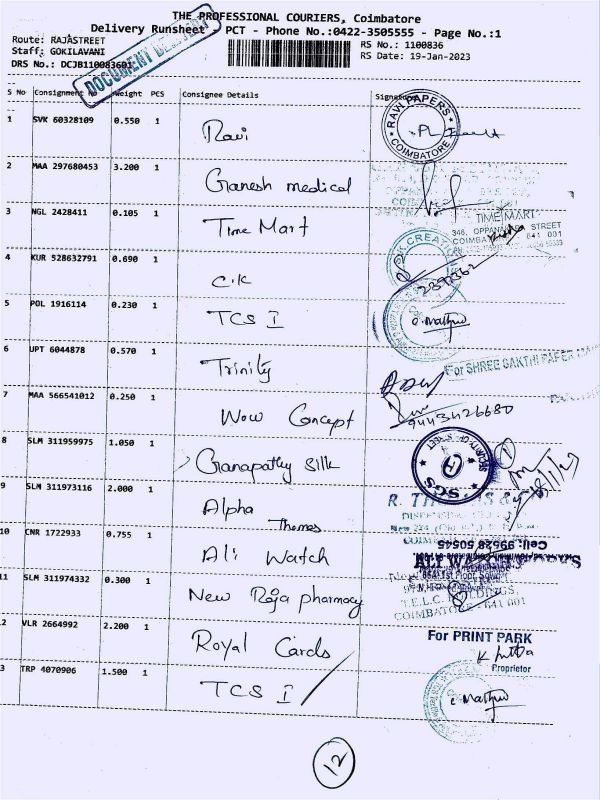 THE PROFESSIONAL COURIERS, Coimbatore
Delivery Runsheet - PCT - Phone No.:0422-3505555 - Page No.:1
Route: RAJASTREET
RS No.: 1100836
Staff: GOKILAVANI
RS Date: 19-Jan-2023
DRS No.: DCJB110083601
DOCUMENT
S No Consignment No Weight PCS Consignee Details Signature
1 SVK 60328109 0.550 1 Ravi
RAVI PAPERS COIMBATORE
2 MAA 297680453 3.200 1 Ganesh medical
3 NGL 2428411 0.105 1 Time Mart
TIME MART
346, OPPANAKARA STREET
COIMBATORE 641 001
4 KUR 528632791 0.690 1 C.K
CK CREATION
2392362
5 POL 1916114 0.230 1 TCS I
C. Mathew
6 UPT 6044878 0.570 1 Trinity
For SHREE SAKTHI PAPER
7 MAA 566541012 0.250 1 Wow Concept
9443426680
8 SLM 311959975 1.050 1 Ganapathy Silk
SGS
H
1
9 SLM 311973116 2.000 1 Alpha Themes
R.
10 CNR 1722933 0.755 1 Ali Watch
Cell: 99528 50545
ALI
11 SLM 311974332 0.300 1 New Raja pharmacy
New
T.E.L.C. BUILDINGS,
COIMBATORE - 641 001
2 VLR 2664992 2.200 1 Royal Cards
For PRINT PARK
Proprietor
3 TRP 4070906 1.500 1 TCS I
C. Mathew
12